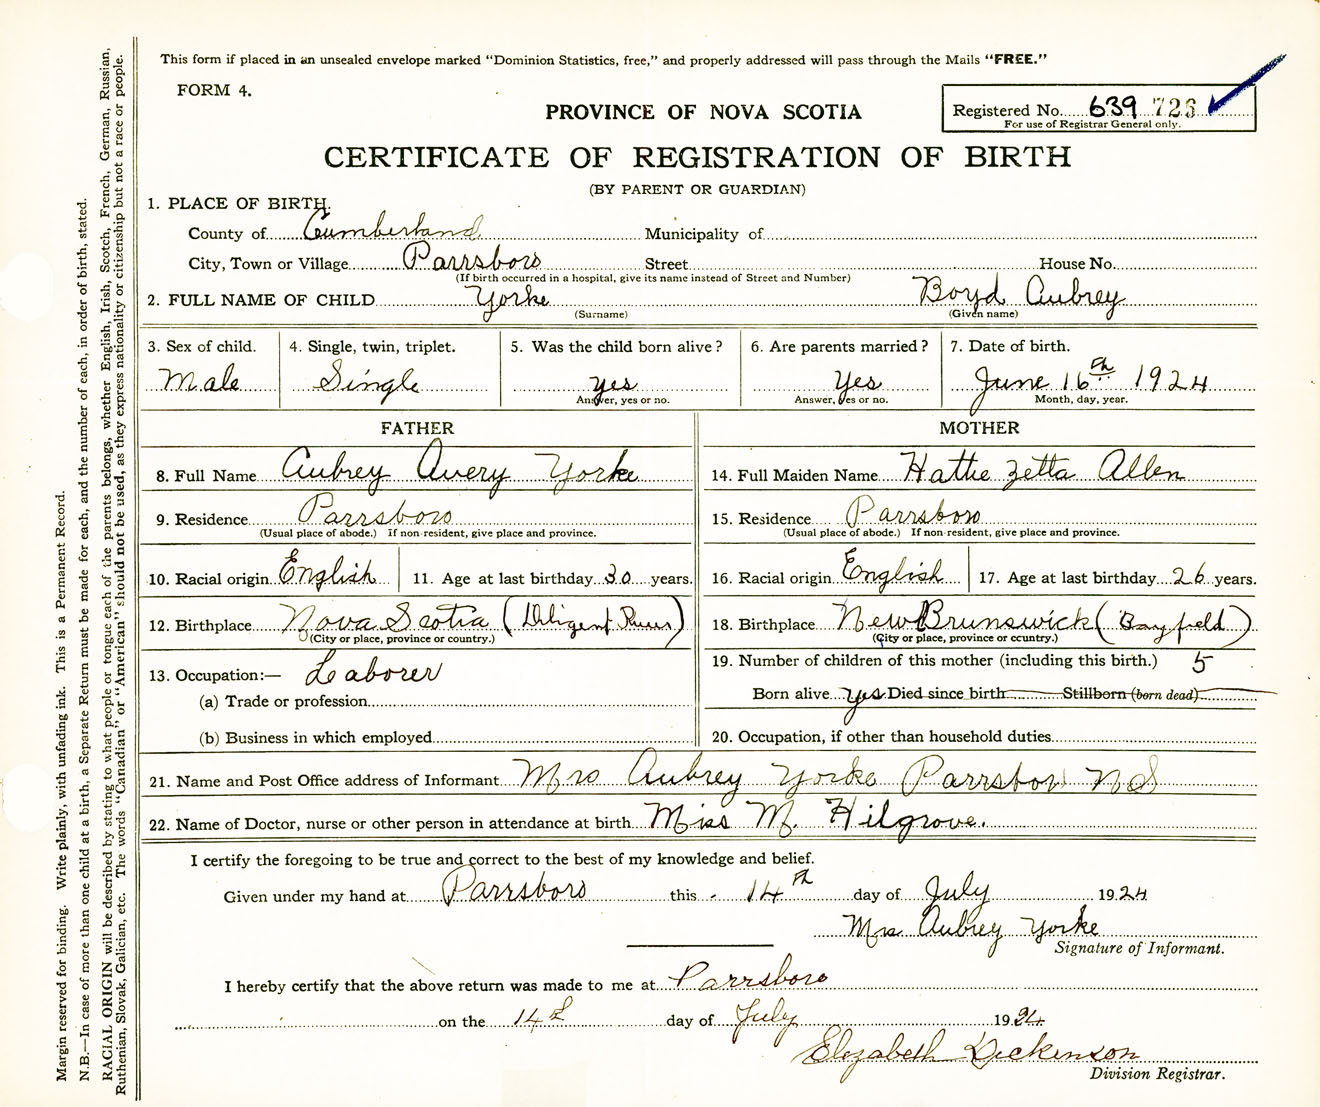 This form if placed in an unsealed envelope marked "Dominion Statistics, free," and properly addressed will pass through the Mails "FREE."
FORM 4.
PROVINCE OF NOVA SCOTIA
Registered No. 639 726
For use of Registrar General only.
CERTIFICATE OF REGISTRATION OF BIRTH
(BY PARENT OR GUARDIAN)
1. PLACE OF BIRTH.
County of Cumberland Municipality of
City, Town or Village Parrsboro Street House No.
(If birth occurred in a hospital, give its name instead of Street and Number)
2. FULL NAME OF CHILD Yorke Boyd Aubrey
(Surname) (Given name)
3. Sex of child. 4. Single, twin, triplet. 5. Was the child born alive? 6. Are parents married? 7. Date of birth.
Male Single yes Yes June 16th 1924
Answer, yes or no. Answer, yes or no. Month, day, year.
FATHER
8. Full Name Aubrey Avery Yorke
9. Residence Parrsboro
(Usual place of abode.) If non-resident, give place and province.
10. Racial origin English 11. Age at last birthday 30 years.
12. Birthplace Nova Scotia (Diligent River)
(City or place, province or country.)
13. Occupation:— Laborer
(a) Trade or profession
(b) Business in which employed
MOTHER
14. Full Maiden Name Hattie Zetta Allen
15. Residence Parrsboro
(Usual place of abode.) If non-resident, give place and province.
16. Racial origin English 17. Age at last birthday 26 years.
18. Birthplace New Brunswick (Bayfield)
(City or place, province or country.)
19. Number of children of this mother (including this birth.) 5
Born alive yes Died since birth Stillborn (born dead)
20. Occupation, if other than household duties
21. Name and Post Office address of Informant Mrs Aubrey Yorke Parrsboro N S
22. Name of Doctor, nurse or other person in attendance at birth Miss M. Hilgrove.
I certify the foregoing to be true and correct to the best of my knowledge and belief.
Given under my hand at Parrsboro this 14th day of July 1924
Mrs Aubrey Yorke
Signature of Informant.
I hereby certify that the above return was made to me at Parrsboro
on the 14th day of July 1924
Elizabeth Dickenson
Division Registrar.
Margin reserved for binding. Write plainly, with unfading ink. This is a Permanent Record.
N.B.—In case of more than one child at a birth, a Separate Return must be made for each, and the number of each, in order of birth, stated.
RACIAL ORIGIN will be described by stating to what people or tongue each of the parents belongs, whether English, Irish, Scotch, French, German, Russian,
Ruthenian, Slovak, Galician, etc. The words "Canadian" or "American" should not be used, as they express nationality or citizenship but not a race or people.